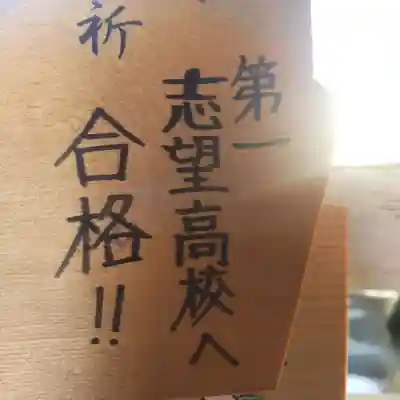 第一
志望高校へ
祈 合格!!